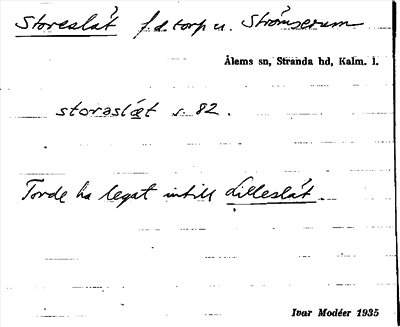 Storeslåt f.d. torp u. Strömserum
Ålems sn, Stranda hd, Kalm. l.
storəslæt s. 82.
Torde ha legat intill Lilleslåt.
Ivar Modéer 1935